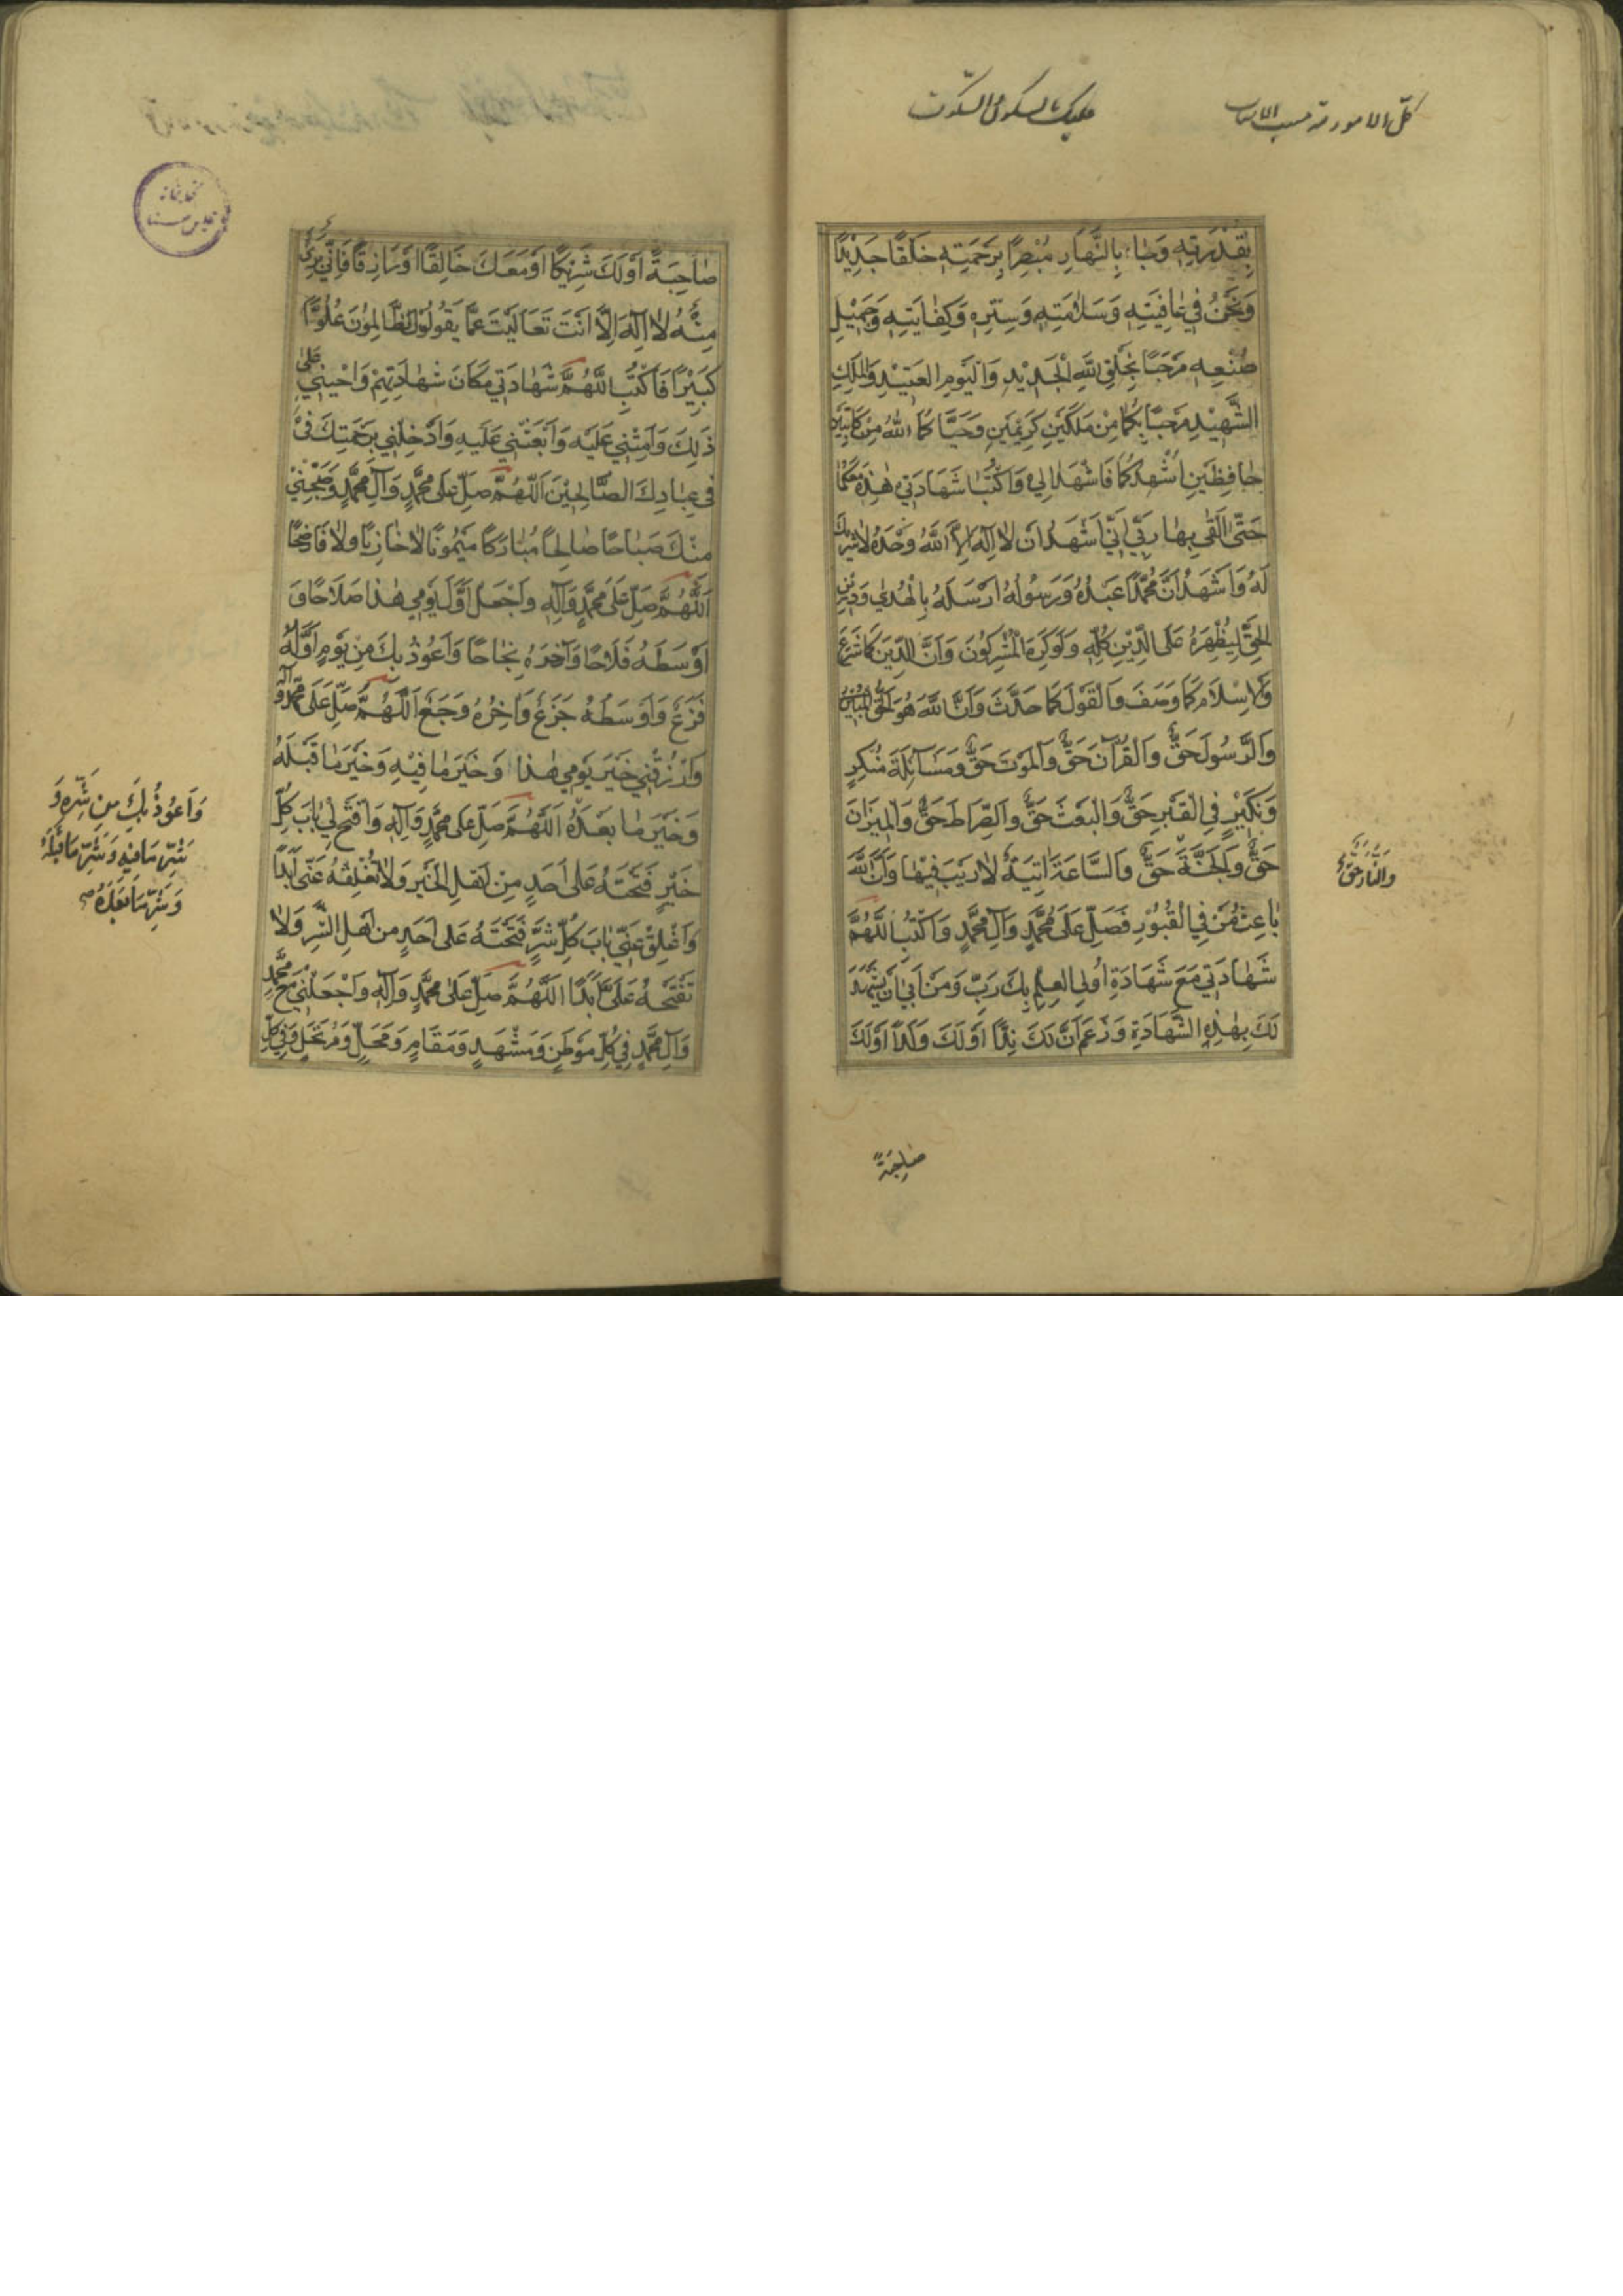 كلّ الامور
عليك بالسكون والسكوت
بِقُدْرَتِهِ وَجَاءَ بِالنَّهَارِ مُبْصِرًا بِرَحْمَتِهِ خَلْقًا جَدِيدًا
وَنَحْنُ فِي عَافِيَتِهِ وَسَلَامَتِهِ وَسِتْرِهِ وَكِفَايَتِهِ وَجَمِيلِ
صُنْعِهِ مَرْحَبًا بِخَلْقِ اللَّهِ الْجَدِيدِ وَالْيَوْمِ الْعَتِيدِ وَالْمَلَكِ
الشَّهِيدِ مَرْحَبًا بِكُمَا مِنْ مَلَكَيْنِ كَرِيمَيْنِ وَحَيَّاكُمَا اللَّهُ مِنْ كَاتِبَيْنِ
حَافِظَيْنِ اُشْهِدُكُمَا فَاشْهَدَا لِي وَاكْتُبَا شَهَادَتِي هٰذِهِ مَعَكُمَا
حَتَّى اَلْقٰى بِهَا رَبِّي اِنِّي اَشْهَدُ اَنْ لَا اِلٰهَ اِلَّا اللَّهُ وَحْدَهُ لَا شَرِيكَ
لَهُ وَاَشْهَدُ اَنَّ مُحَمَّدًا عَبْدُهُ وَرَسُولُهُ اَرْسَلَهُ بِالْهُدٰى وَدِينِ
الْحَقِّ لِيُظْهِرَهُ عَلَى الدِّينِ كُلِّهِ وَلَوْ كَرِهَ الْمُشْرِكُونَ وَاَنَّ الدِّينَ كَمَا شَرَعَ
وَالْاِسْلَامَ كَمَا وَصَفَ وَالْقَوْلَ كَمَا حَدَّثَ وَاَنَّ اللَّهَ هُوَ الْحَقُّ الْمُبِينُ
وَالرَّسُولَ حَقٌّ وَالْقُرْآنَ حَقٌّ وَالْمَوْتَ حَقٌّ وَمَسَآئِلَةَ مُنْكَرٍ
وَنَكِيرٍ فِي الْقَبْرِ حَقٌّ وَالْبَعْثَ حَقٌّ وَالصِّرَاطَ حَقٌّ وَالْمِيزَانَ
حَقٌّ وَالْجَنَّةَ حَقٌّ وَالسَّاعَةَ اٰتِيَةٌ لَا رَيْبَ فِيهَا وَاَنَّ اللَّهَ
وَالنَّارَ حَقٌّ
بَاعِثُ مَنْ فِي الْقُبُورِ فَصَلِّ عَلَى مُحَمَّدٍ وَآلِ مُحَمَّدٍ وَاكْتُبِ اللَّهُمَّ
شَهَادَتِي مَعَ شَهَادَةِ اُولِي الْعِلْمِ بِكَ رَبِّ وَمَنْ اَبٰى اَنْ يَشْهَدَ
لَكَ بِهٰذِهِ الشَّهَادَةِ وَزَعَمَ اَنَّ لَكَ نِدًّا اَوْ لَكَ وَلَدًا اَوْ لَكَ
صَاحِبَةً
كتابخانه
مجلس سنا
صَاحِبَةً اَوْ لَكَ شَرِيكًا اَوْ مَعَكَ خَالِقًا اَوْ رَازِقًا فَاِنِّي بَرِيءٌ
مِنْهُ لَا اِلٰهَ اِلَّا اَنْتَ تَعَالَيْتَ عَمَّا يَقُولُ الظَّالِمُونَ عُلُوًّا
كَبِيرًا فَاكْتُبِ اللَّهُمَّ شَهَادَتِي مَكَانَ شَهَادَتِهِمْ وَاَحْيِنِي عَلٰى
ذَلِكَ وَاَمِتْنِي عَلَيْهِ وَابْعَثْنِي عَلَيْهِ وَاَدْخِلْنِي بِرَحْمَتِكَ فِي
فِي عِبَادِكَ الصَّالِحِينَ اَللَّهُمَّ صَلِّ عَلَى مُحَمَّدٍ وَآلِ مُحَمَّدٍ وَصَبِّحْنِي
مِنْكَ صَبَاحًا صَالِحًا مُبَارَكًا مَيْمُونًا لَا خَازِيًا وَلَا فَاضِحًا
اَللَّهُمَّ صَلِّ عَلَى مُحَمَّدٍ وَآلِهِ وَاجْعَلْ اَوَّلَ يَوْمِي هٰذَا صَلَاحًا وَ
اَوْسَطَهُ فَلَاحًا وَآخِرَهُ نَجَاحًا وَاَعُوذُ بِكَ مِنْ يَوْمٍ اَوَّلُهُ
فَزَعٌ وَاَوْسَطُهُ جَزَعٌ وَاٰخِرُهُ وَجَعٌ اَللَّهُمَّ صَلِّ عَلَى مُحَمَّدٍ وَآلِهِ
وَارْزُقْنِي خَيْرَ يَوْمِي هٰذَا وَخَيْرَ مَا فِيهِ وَخَيْرَ مَا قَبْلَهُ
وَخَيْرَ مَا بَعْدَهُ اَللَّهُمَّ صَلِّ عَلَى مُحَمَّدٍ وَآلِهِ وَافْتَحْ لِي بَابَ كُلِّ
وَاَعُوذُ بِكَ مِنْ شَرِّهِ وَ
شَرِّ مَا فِيهِ وَشَرِّ مَا قَبْلَهُ
وَشَرِّ مَا بَعْدَهُ
خَيْرٍ فَتَحْتَهُ عَلَى اَحَدٍ مِنْ اَهْلِ الْخَيْرِ وَلَا تُغْلِقْهُ عَنِّي اَبَدًا
وَاَغْلِقْ عَنِّي بَابَ كُلِّ شَرٍّ فَتَحْتَهُ عَلَى اَحَدٍ مِنْ اَهْلِ الشَّرِّ وَلَا
تَفْتَحْهُ عَلَيَّ اَبَدًا اَللَّهُمَّ صَلِّ عَلَى مُحَمَّدٍ وَآلِهِ وَاجْعَلْنِي مَعَ مُحَمَّدٍ
وَآلِ مُحَمَّدٍ فِي كُلِّ مَوْطِنٍ وَمَشْهَدٍ وَمَقَامٍ وَمَحَلٍّ وَمُرْتَحَلٍ وَفِي كُلِّ